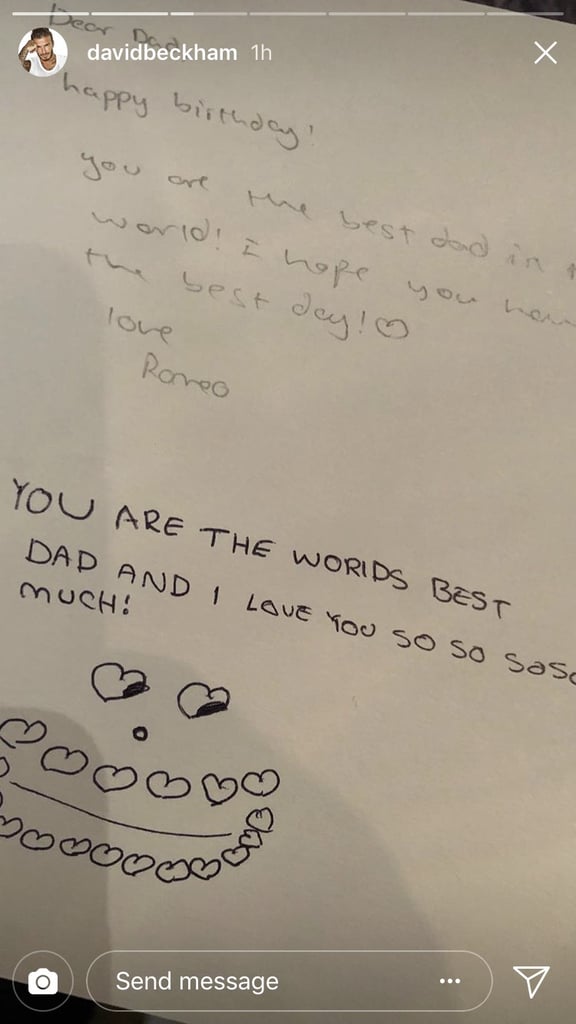 Dear Dad
davidbeckham 1h
happy birthday!
you are the best dad in
world! I hope you
the best day!
love
Romeo
YOU ARE THE WORLDS BEST
DAD AND I LOVE YOU SO SO SOSO
MUCH!
Send message